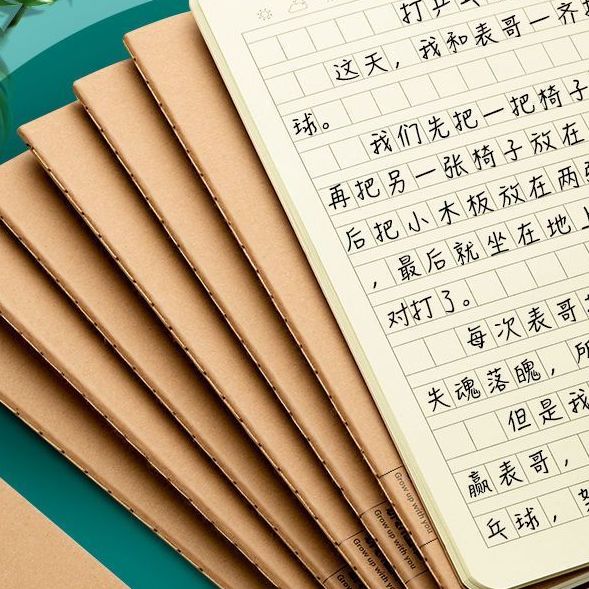 打乒乓
这天，我和表哥一齐打
球。
我们先把一把椅子
再把另一张椅子放在
后把小木板放在两
，最后就坐在地上
对打了。
每次表哥
失魂落魄，所
但是我
赢表哥，
乒球，
Grow up with you
Grow up with you
Grow up with you
Grow up with you